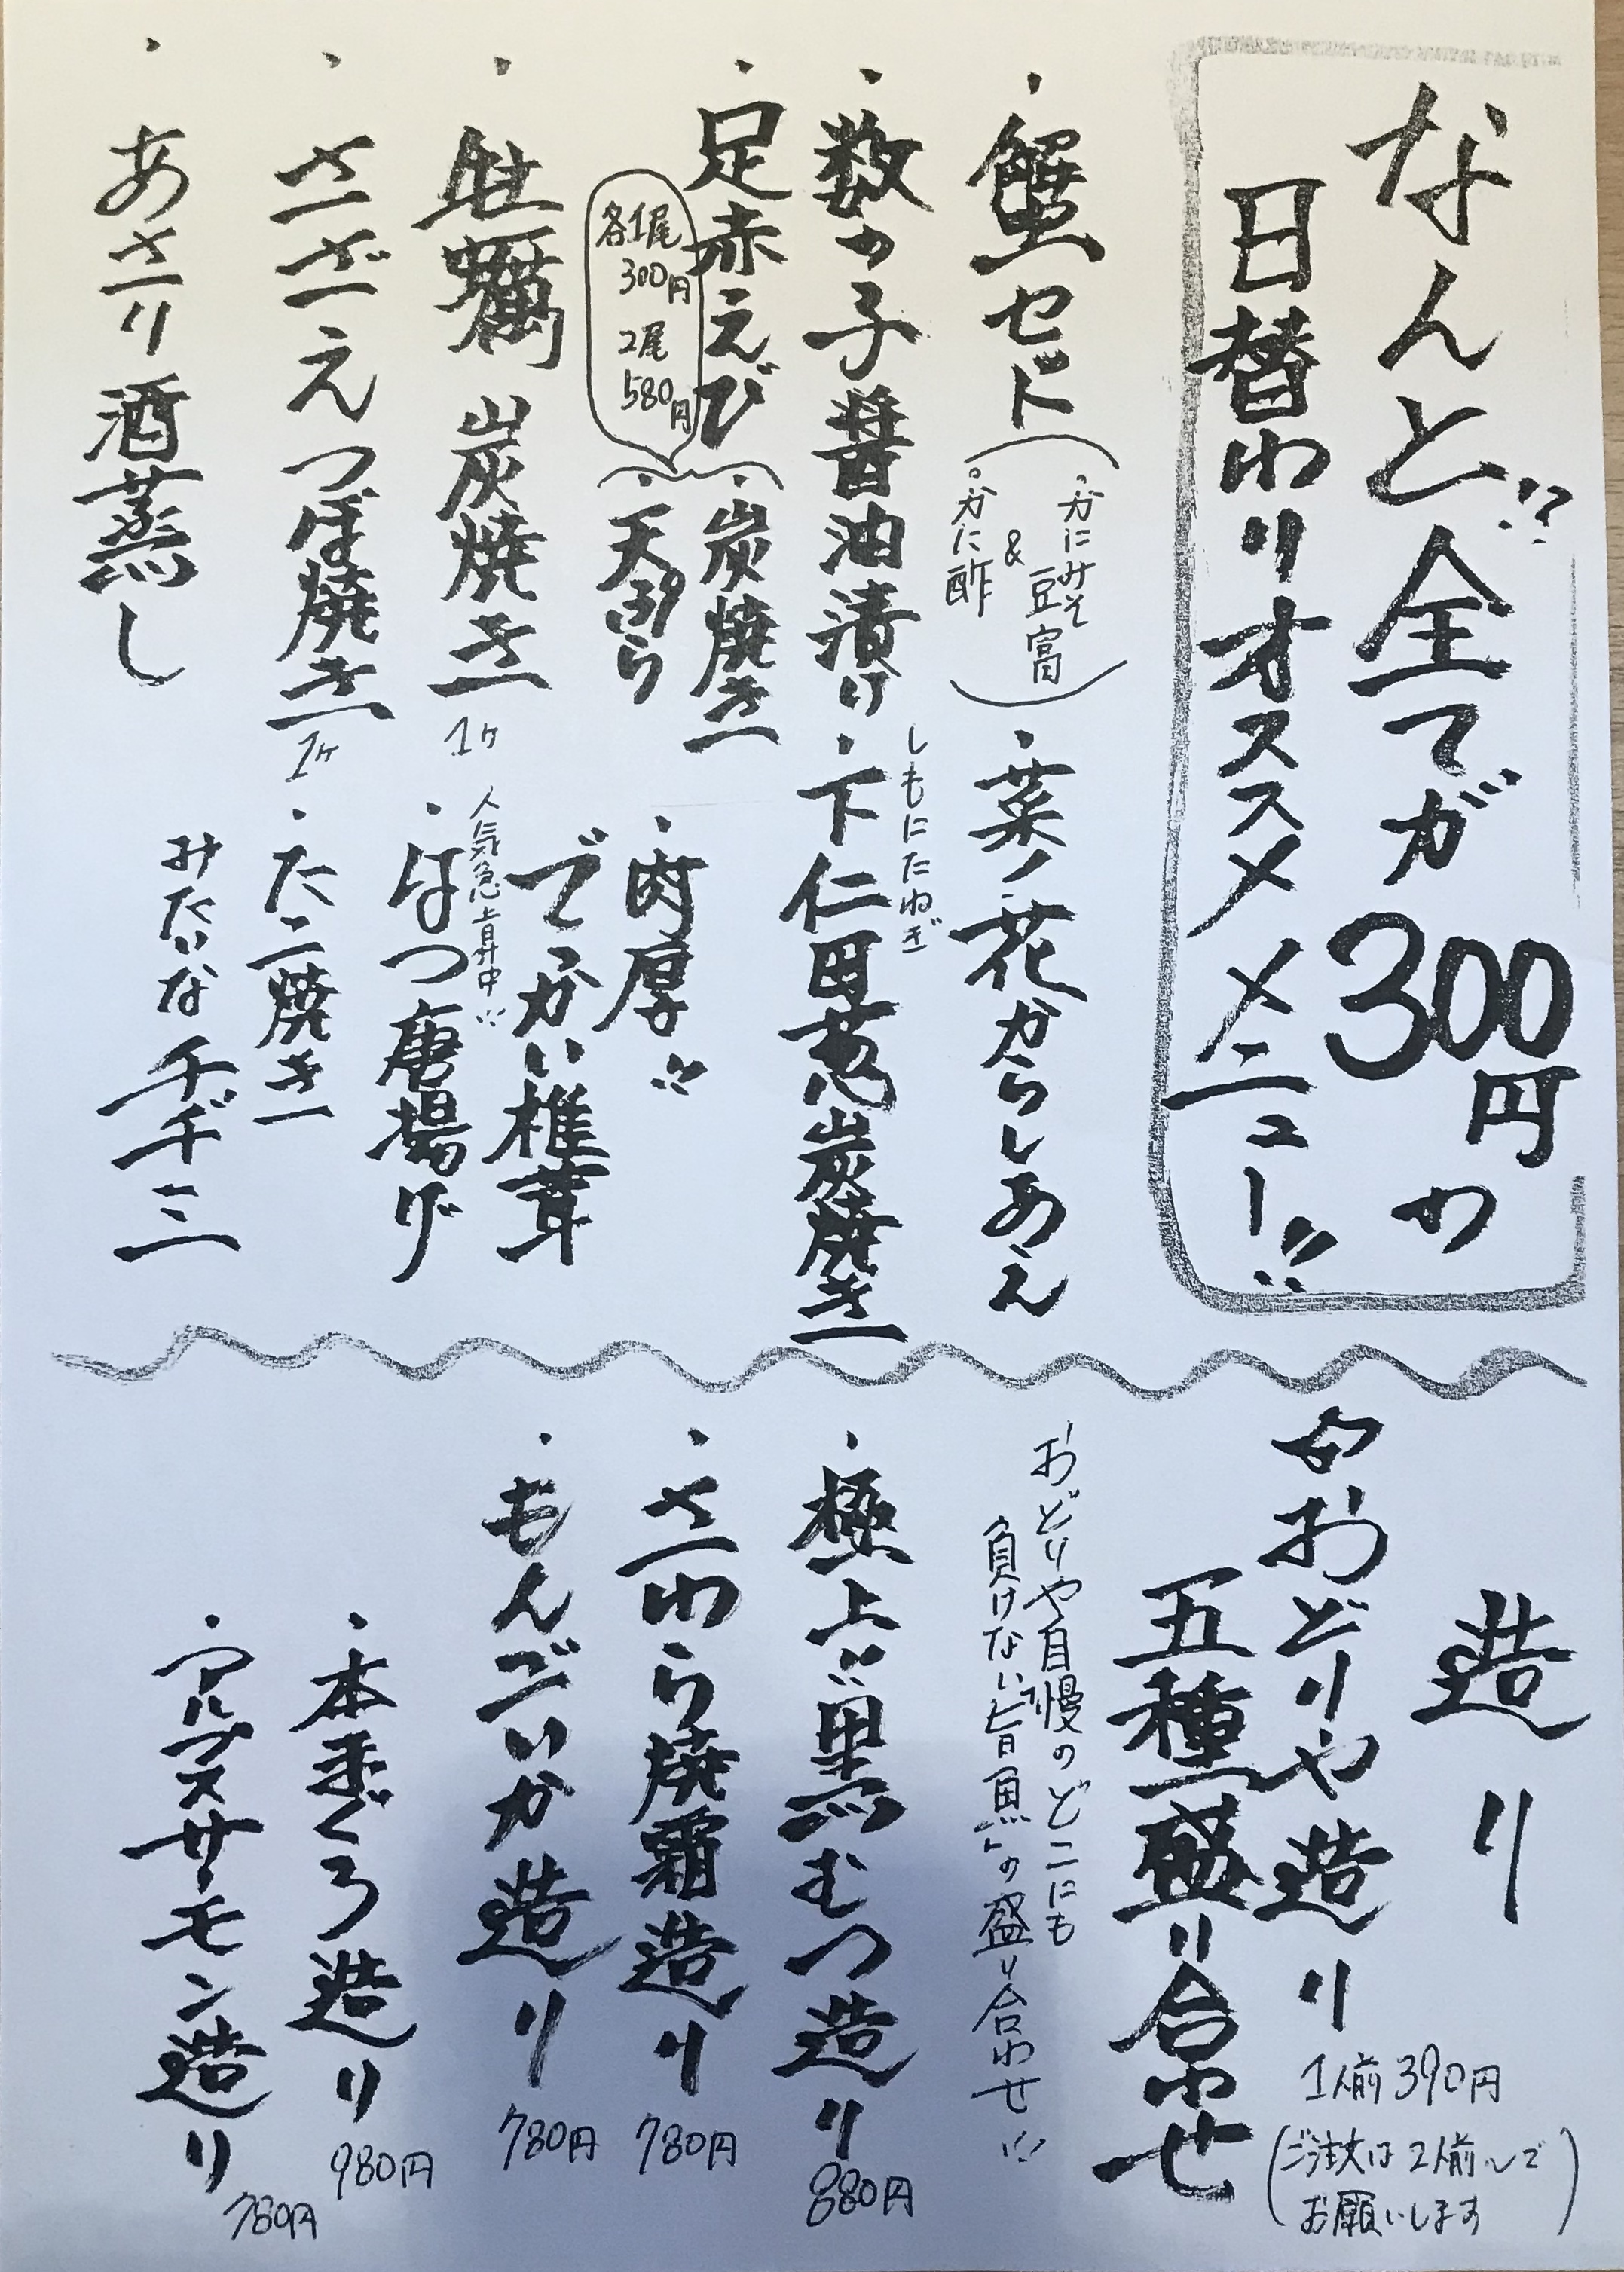 なんと!?全てガ300円の
日替わりオススメメニュー!!
・蟹セット
・かにみそ豆富
&
・かに酢
・菜ノ花からしあえ
・数の子醤油漬け
しもにたねぎ
・下仁田葱炭焼き
・足赤えび
・炭焼き
・天ぷら
各1尾
300円
2尾
580円
・肉厚!!
でっかい椎茸
・牡蠣 炭焼き 1ヶ
人気急上昇中!!
・はつ唐揚げ
・さざえつぼ焼き 1ヶ
・たこ焼き
みたいなチヂミ
・あさり酒蒸し
造り
☆おどりや造り
五種盛り合わせ
1人前390円
(ご注文は2人前〜で
お願いします)
おどりや自慢のどこにも
負けない「旨魚」の盛り合わせ!!
・極上!!黒むつ造り 880円
・さわら焼霜造り 780円
・もんごいか造り 780円
・本まぐろ造り 980円
・アルプスサーモン造り 780円